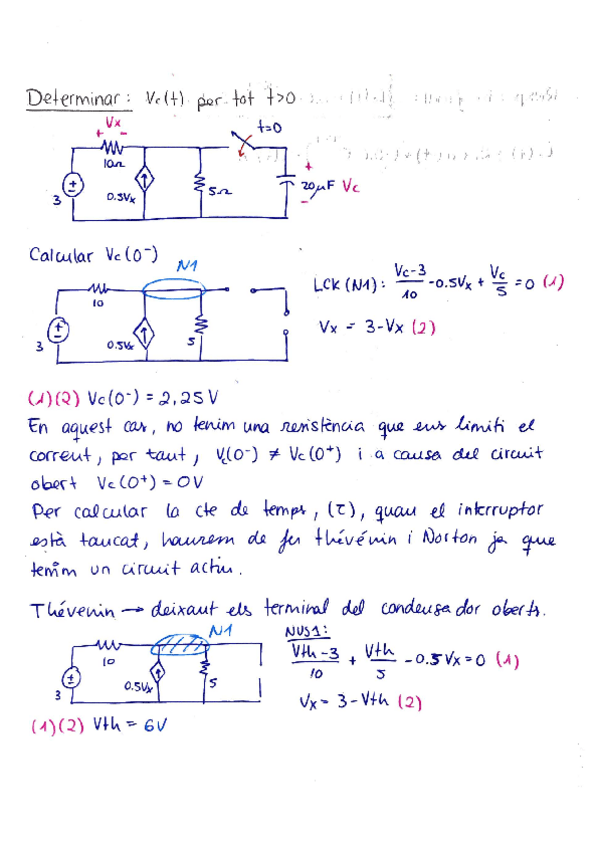 Determinar: Vc(t) per tot t>0
Vx
+ -
10Ω
t=0
3
0.5Vx
5Ω
+
20μF Vc
-
Calcular Vc(0⁻)
N1
10
3
0.5Vx
5
LCK (N1): Vc-3/10 -0.5Vx + Vc/5 = 0 (1)
Vx = 3-Vx (2)
(1)(2) Vc(0⁻) = 2,25V
En aquest cas, no tenim una resistència que ens limiti el
corrent, per tant, Vc(0⁻) ≠ Vc(0⁺) i a causa del circuit
obert Vc(0⁺) = 0V
Per calcular la cte de temps, (τ), quan el interruptor
està tancat, haurem de fer thévénin i Norton ja que
tenim un circuit actiu.
Thévenin → deixant els terminal del condensador oberts.
N1
10
3
0.5Vx
5
NUS1:
Vth-3/10 + Vth/5 - 0.5Vx = 0 (1)
Vx = 3-Vth (2)
(1)(2) Vth = 6V